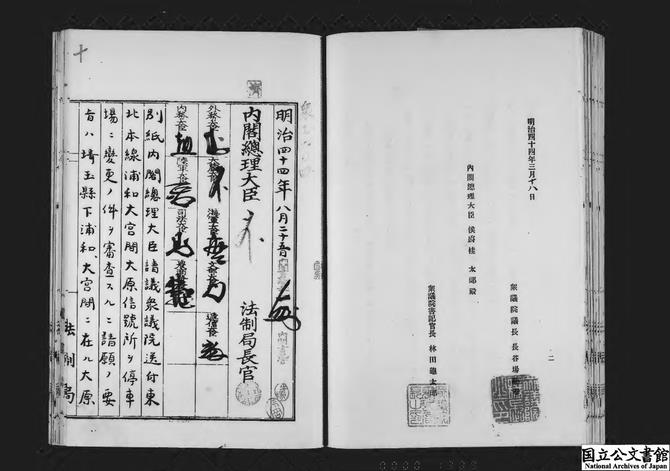 二
衆議院議長 長谷場
衆議院書記官長 林田龜太郎
内閣總理大臣 侯爵桂 太郎殿
明治四十四年三月十八日
十
明治四十四年八月二十五日
内閣總理大臣
法制局長官
外務大臣
大藏大臣
海軍大臣
文部大臣
遞信大臣
内務大臣
陸軍大臣
司法大臣
別紙内閣總理大臣請議衆議院送付東
北本線浦和大宮間大原信號所ヲ停車
場ニ變更ノ件ヲ審査スルニ請願ノ要
旨ハ埼玉縣下浦和、大宮間ニ在ル大原
法制局
国立公文書館
National Archives of Japan